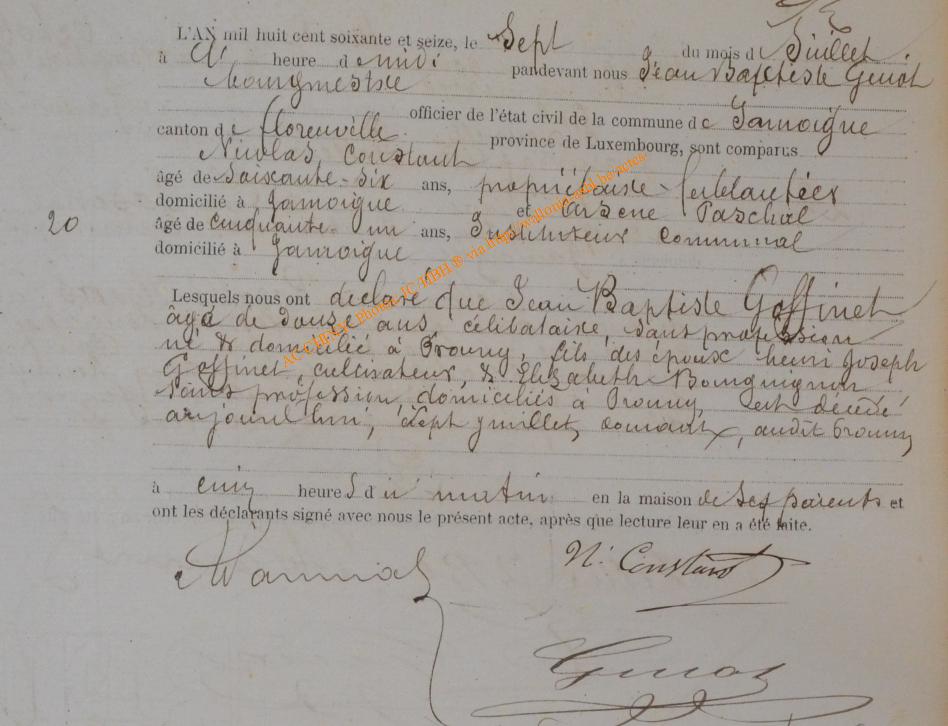 L'AN mil huit cent soixante et seize, le Sept du mois de Juillet
à heure de midi pardevant nous Jean Baptiste Guiot
Bourgmestre
officier de l'état civil de la commune de Jamoigne
canton de florenville province de Luxembourg, sont comparus
Nicolas Constant
âgé de Soixante-Six ans, propriétaire
domicilié à Jamoigne et Arsène Paschal
20
âgé de Cinquante-un ans, Instituteur Communal
domicilié à Jamoigne
Lesquels nous ont déclaré que Jean Baptiste Goffinet
agé de douse ans, célibataire, sans profession
né & domicilié à Prouvy, fils des époux henri Joseph
Goffinet, cultivateur, & Elisabeth Bourguignon
sans profession domiciliés à Prouvy, est décédé
aujourd'hui, Sept juillet, courant, audit Prouvy
à cinq heures du matin en la maison de ses parents et
ont les déclarants signé avec nous le présent acte, après que lecture leur en a été faite.
N. Constant
Guiot